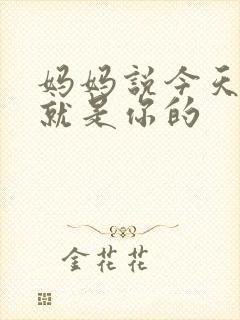 妈妈説今天
就是你的
金花花